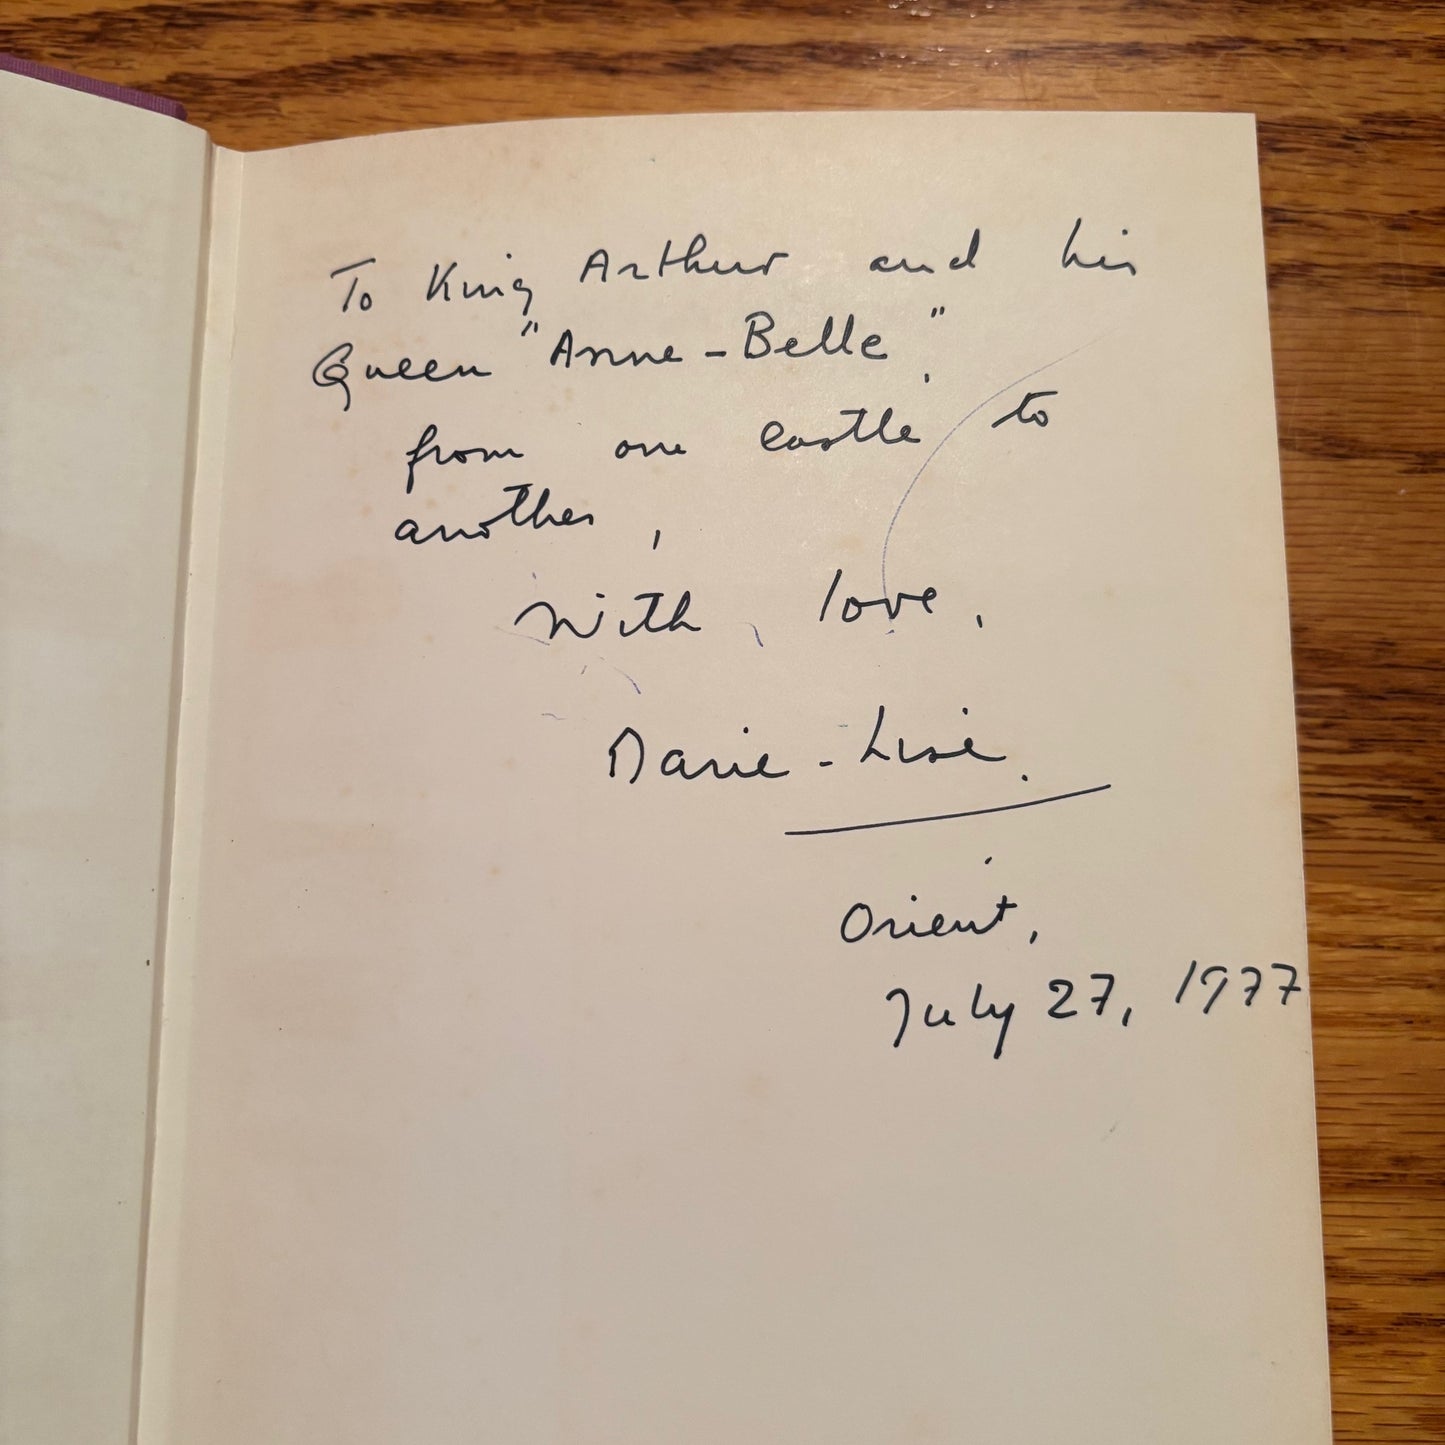 To King Arthur and his
Queen "Anne-Belle",
from one castle to
another,
with love,
Marie-Lise.
Orient,
July 27, 1977